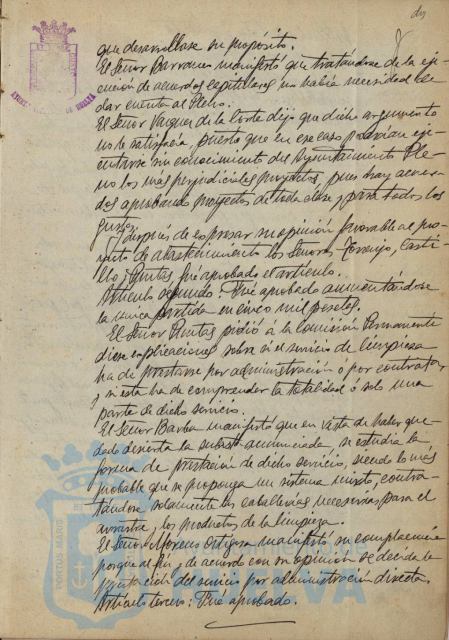 que desarrollase su propósito.
El Señor Barranco manifestó que tratándose de la eje-
cución de acuerdos capitulares no había necesidad de
dar cuenta al Pleno.
El Señor Vazquez de la Corte dijo que dicho argumento
no le satisfacía, puesto que en ese caso podrían eje-
cutarse sin conocimiento del Ayuntamiento Ple-
no los más perjudiciales proyectos, pues hay acuer-
dos aprobando proyectos de toda clase y para todos los
gustos.
Y después de expresar su opinión favorable al pro-
yecto de abastecimiento los Señores Cornejo, Casti-
llo y Puntas fué aprobado el artículo.
Artículo segundo: Fué aprobado aumentándose
la nueva partida en cinco mil pesetas.
El Señor Puntas pidió á la Comisión Permanente
diese explicaciones sobre si el servicio de limpieza
ha de prestarse por administración o por contrata,
y si esta ha de comprender la totalidad ó solo una
parte de dicho servicio.
El Señor Barba manifestó que en vista de haber que-
dado desierta la subasta anunciada, se estudia la
forma de prestación de dicho servicio, siendo lo más
probable que se proponga un sistema mixto, contra-
tándose solamente las caballerías necesarias para el
arrastre y los productos de la limpieza.
El Señor Moreno Ortega manifestó su complacencia
porque al fin y de acuerdo con su opinión se decida la
prestación del servicio por administración directa.
Artículo tercero: Fué aprobado.
PORTUS MARIS
Ayuntamiento de
HUELVA